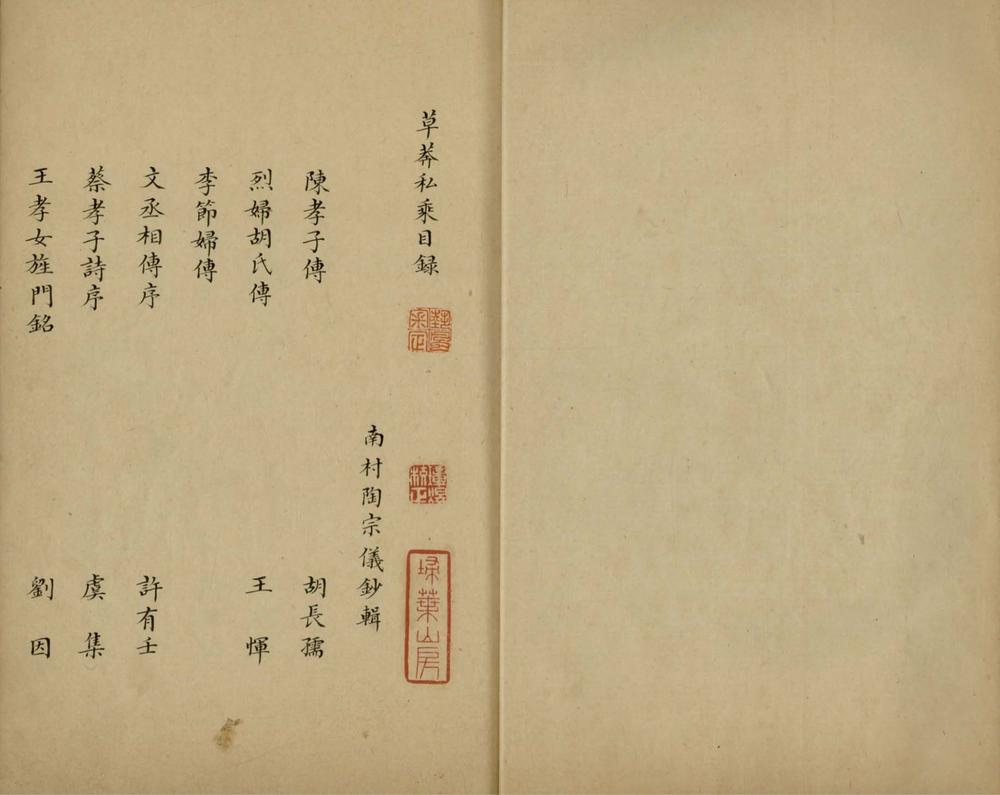 草莽私乘目録
南村陶宗儀鈔輯
陳孝子傳 胡長孺
烈婦胡氏傳 王惲
李節婦傳
文丞相傳序 許有壬
蔡孝子詩序 虞集
王孝女旌門銘 劉因
埽葉山房